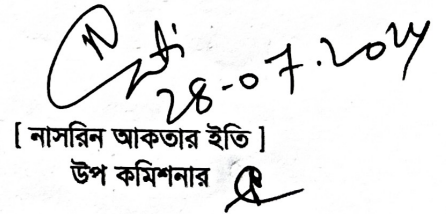 28-07.2024
[ নাসরিন আকতার ইতি ]
উপ কমিশনার